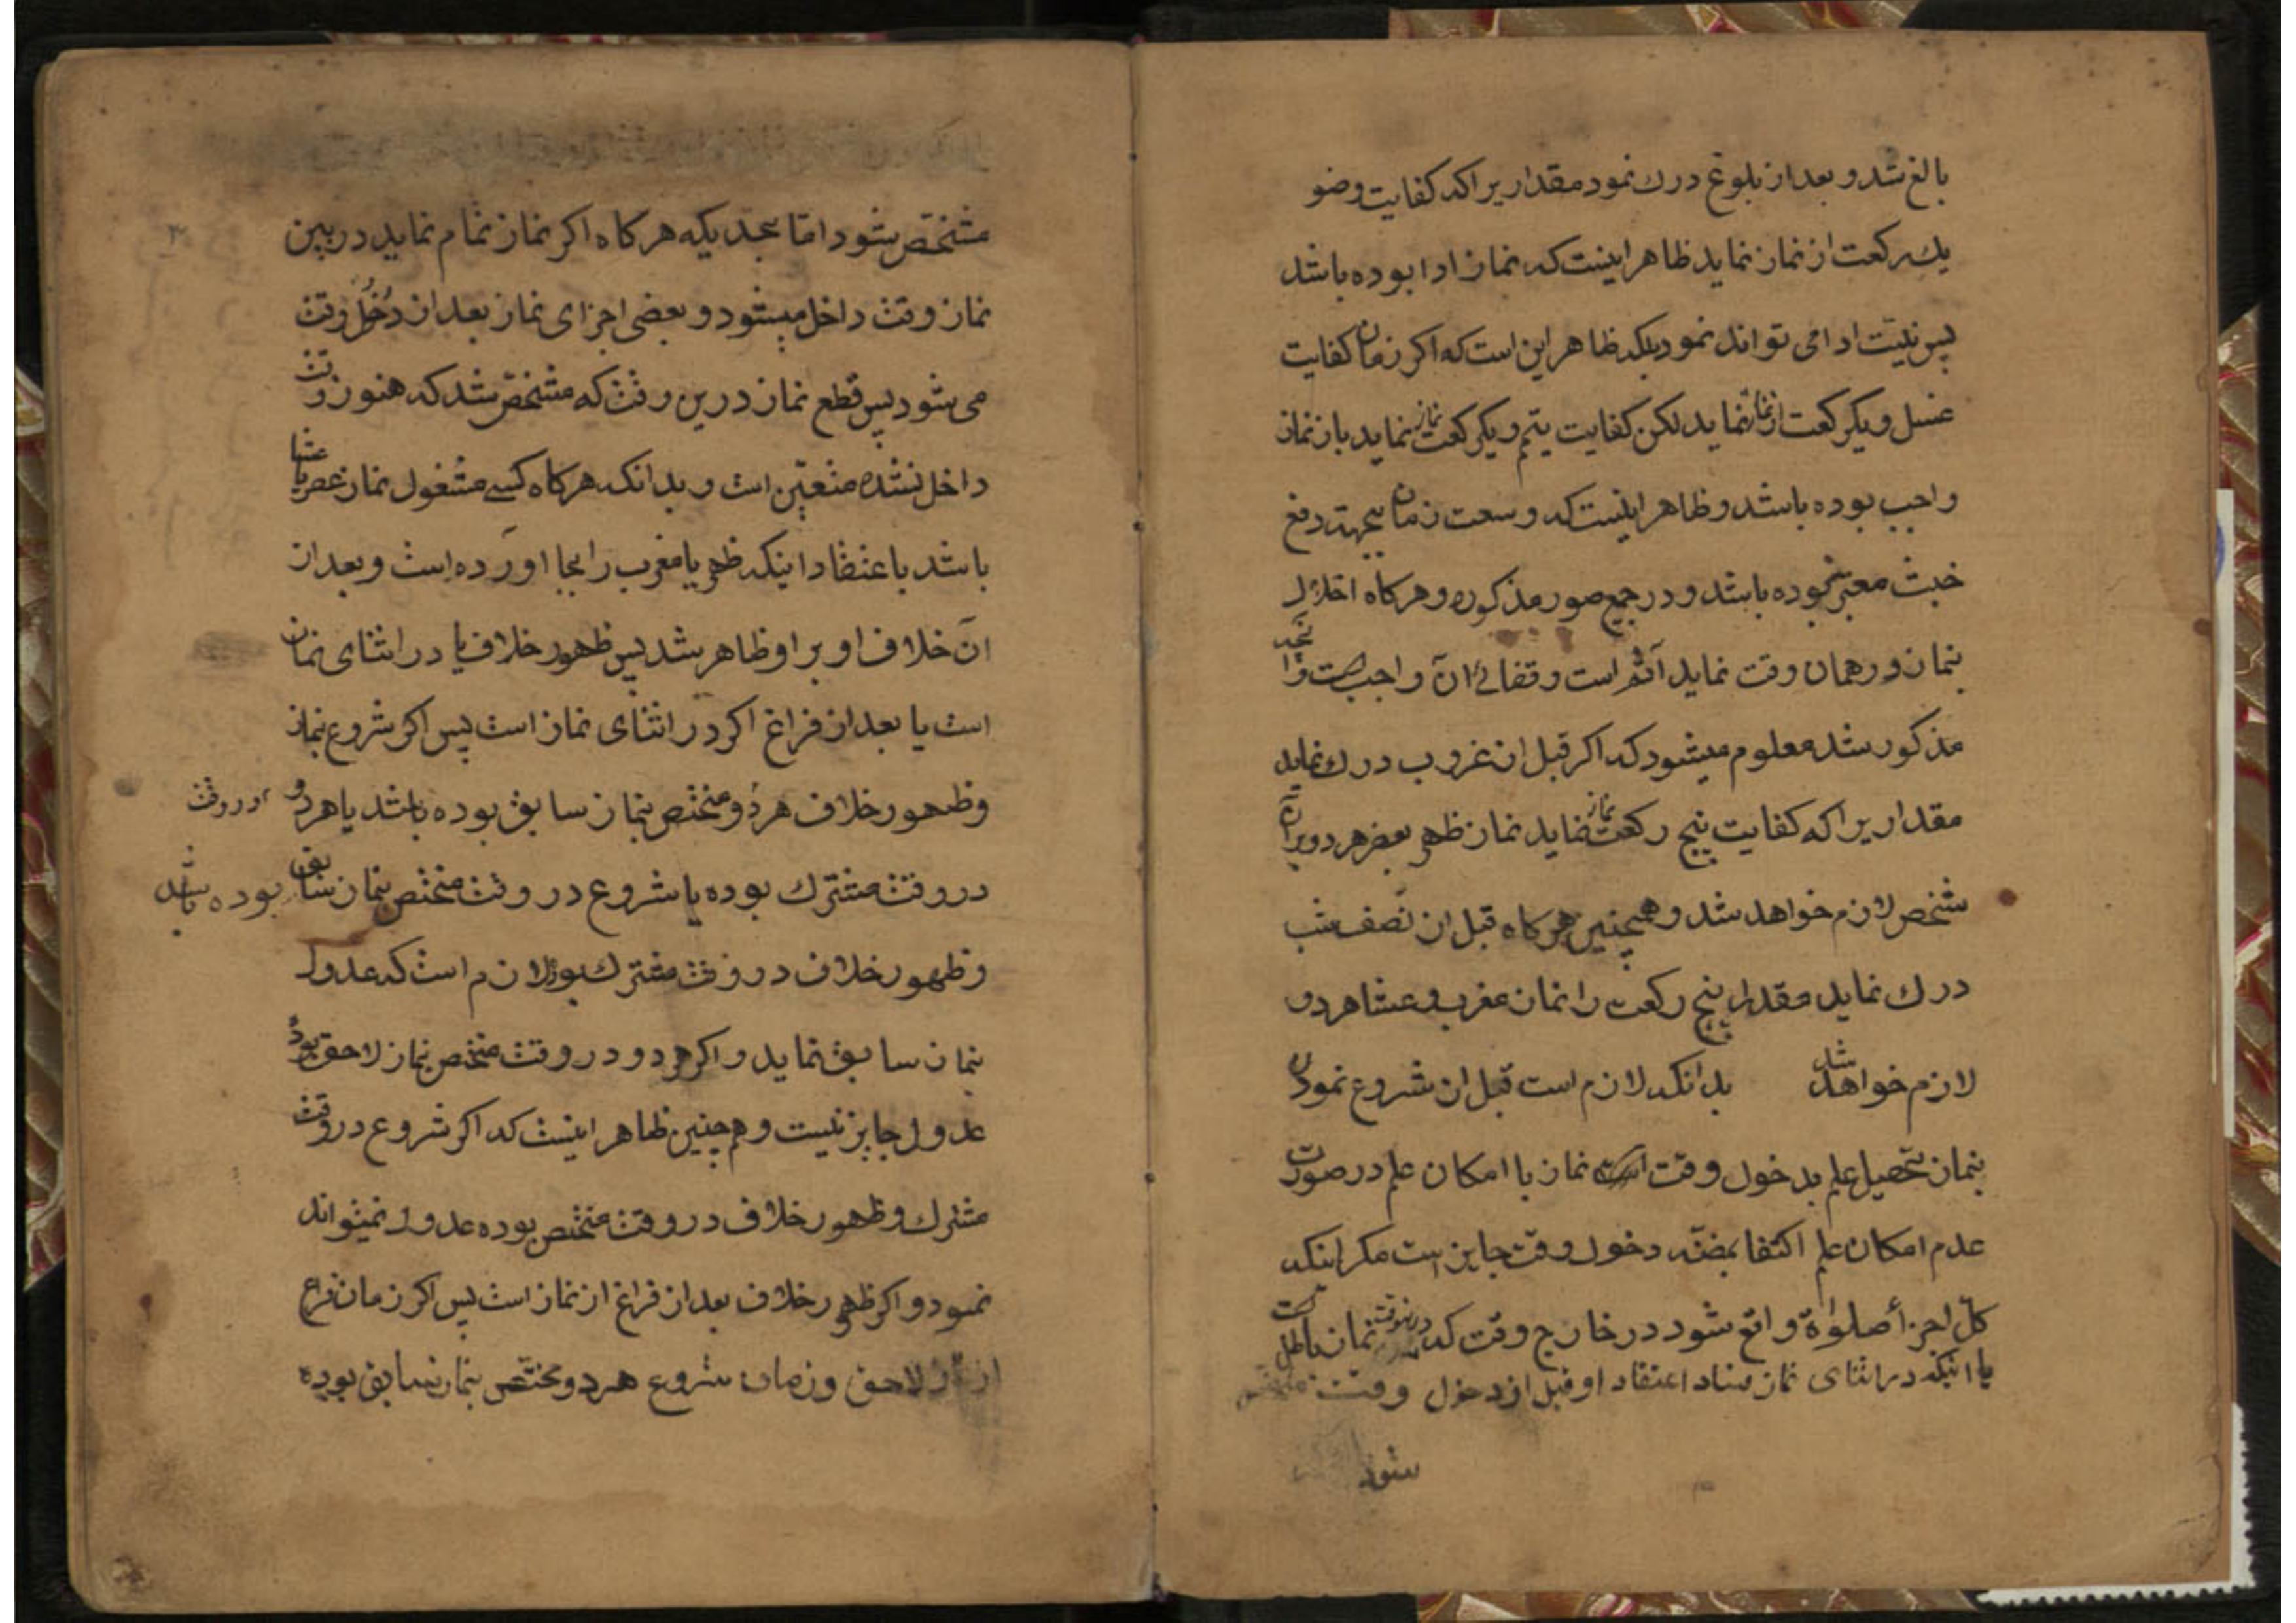 بالغ شد و بعد از بلوغ درك نمود مقداریرا که کفایت وضو
یك رکعت از نماز نماید ظاهر اینست که نماز ادا بوده باشد
پس نیّت ادا می تواند نمود بلکه ظاهر این است که اکر زمان کفایت
غسل و یکرکعت از نماز نماید لکن کفایت تیمّم و یکرکعت نماز نماید باز نماز
واجب بوده باشد و ظاهر اینست که وسعت زمان بجهة دفع
خبث معتبر نبوده باشد و در جمیع صور مذکوره و هرکاه اخلال
بنماز در همان وقت نماید آثم است و قضائے آن واجب است و از آنچه
مذکور شد معلوم میشود که اکر قبل از غروب درك نماید
مقداریرا که کفایت پنج رکعت نماز نماید نماز ظهر و عصر هر دو بر آن
شخص لازم خواهد شد و همچنین هرکاه قبل از نصف شب
درك نماید مقدار پنج رکعت را نماز مغرب و عشا هر دو
لازم خواهد شد بدانکه لازم است قبل از شروع نمودن
بنماز تحصیل علم بدخول وقت نماز با امکان علم در صورت
عدم امکان علم اکتفا بمضنّه دخول وقت جایز است مکر اینکه
کلّ اجزأ صلوٰة واقع شود در خارج وقت که درینوقت نماز باطل است
یا اینکه در اثنای نماز فساد اعتقاد او قبل از دخول وقت مشخص
شود
مشخّص شود امّا بحدیکه هرکاه اکر نماز تمام نماید در بین
نماز وقت داخل میشود و بعضی اجزای نماز بعد از دُخُل وقت
می شود پس قطع نماز درین وقت که مشخّص شد که هنوز وقت
داخل نشده متعیّن است و بدانکه هرکاه کسے مشغول نماز عصر یا عشا
باشد باعتقاد اینکه ظهر یا مغرب را بجا اورده است و بعد از
آن خلاف او بر او ظاهر شد پس ظهور خلاف یا در اثنای نماز
است یا بعد از فراغ اکر در اثنای نماز است پس اکر شروع نماز
و ظهور خلاف هر دو مختص بنماز سابق بوده باشد یا هر دو
در وقت
در وقت مشترك بوده یا شروع در وقت مختص بنماز سابق بوده باشد
و ظهور خلاف در وقت مشترك بود لازم است که عدول
بنماز سابق نماید و اکر هر دو در وقت مختص بنماز لاحق بود
عدول جایز نیست و هم چنین ظاهر اینست که اکر شروع در وقت
مشترك و ظهور خلاف در وقت مختص بوده عدول نمیتواند
نمود و اکر ظهور خلاف بعد از فراغ از نماز است پس اکر زمان فراغ
از نماز لاحق و زمان شروع هر دو مختص بنماز سابق بوده